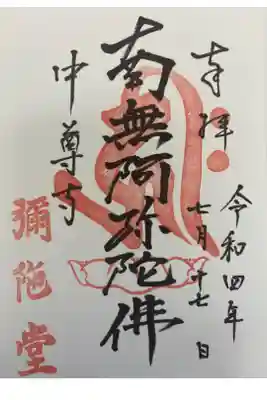 奉拝
令和四年
七月十七日
南無阿弥陀佛
中尊寺
彌陀堂